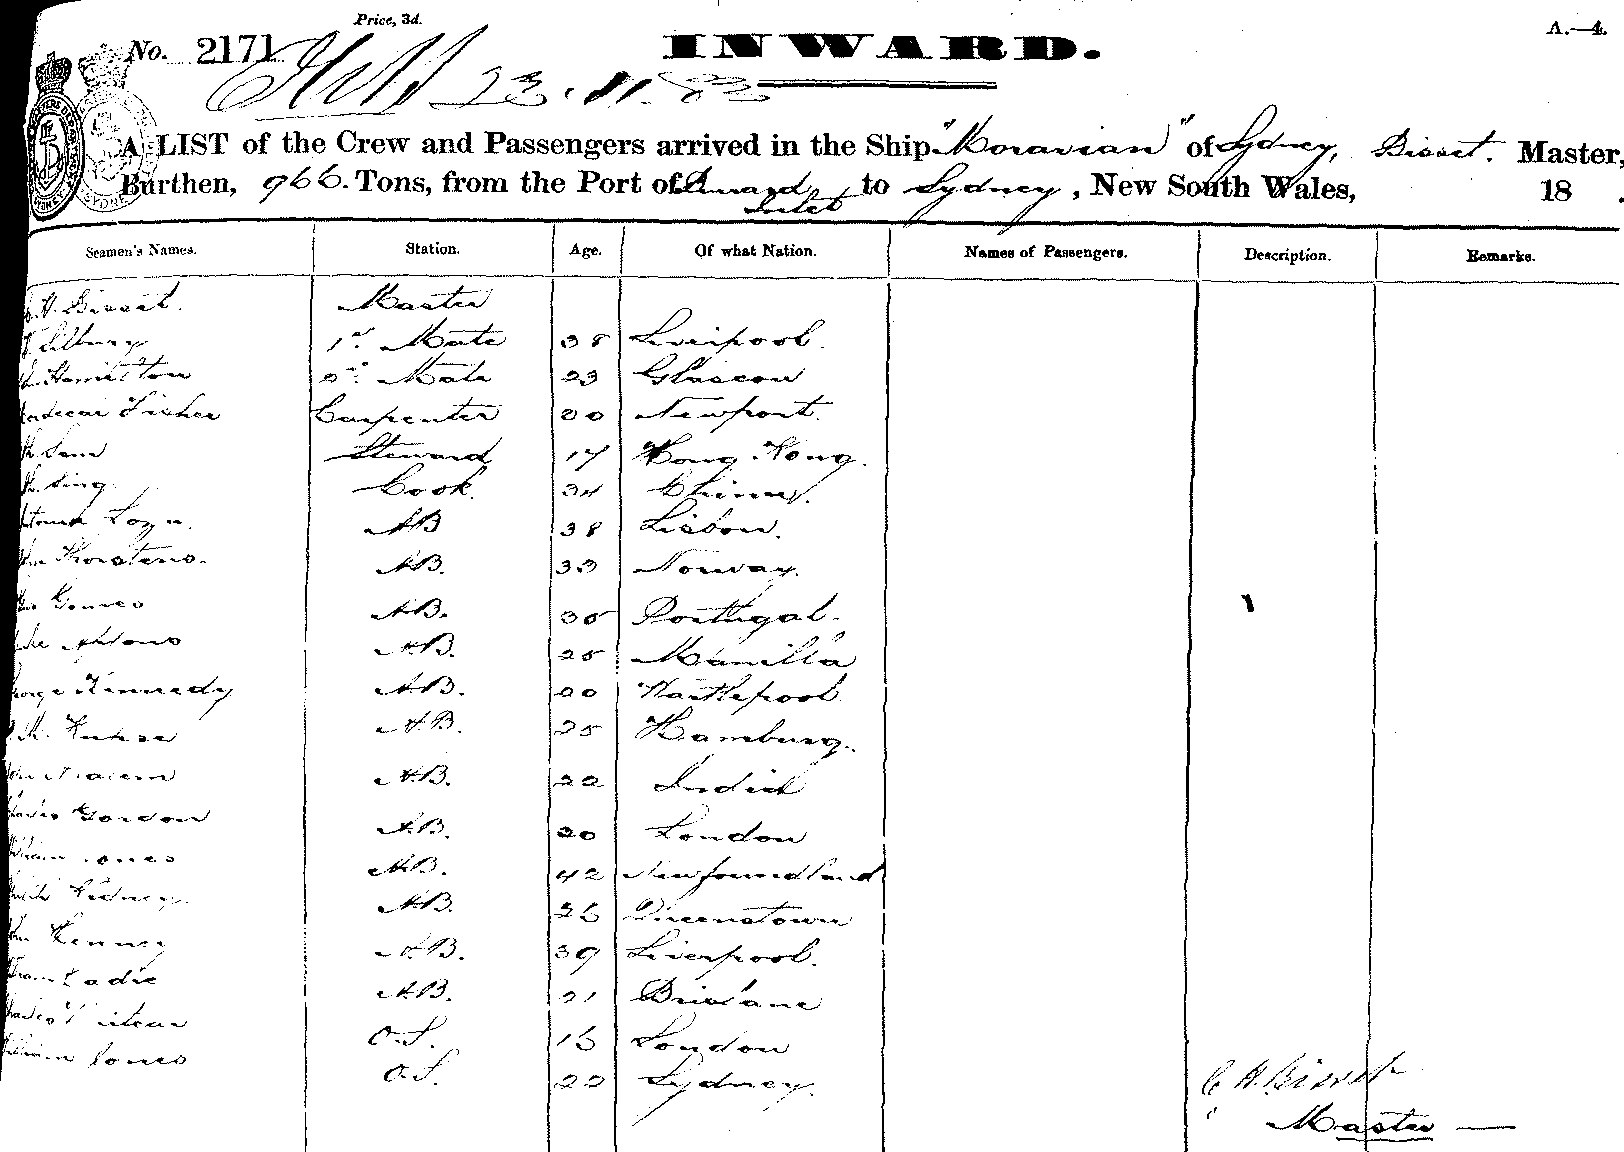 Price, 3d.
A.—4.
No. 2171
INWARD.
23.11.82
A LIST of the Crew and Passengers arrived in the Ship "Moravian" of Sydney, Bisset. Master,
Burthen, 966. Tons, from the Port of Burrard Inlet to Sydney, New South Wales, 18 .
Seamen's Names. Station. Age. Of what Nation. Names of Passengers. Description. Remarks.
H. Bisset. Master
1st Mate 38 Liverpool.
Hamilton 2nd Mate 23 Glascow
Fisher Carpenter 20 Newport.
Sam Steward 17 Hong Kong.
Sing. Cook. 34 China.
AB 38 Lisbon.
AB. 33 Norway.
Gomes AB. 35 Portugal.
AB. 25 Manilla
George Kennedy AB. 20 Hartlepool
A.B. 25 Hamburg.
AB. 22 India
Gordon AB. 20 London
William Jones AB. 42 Newfoundland
AB. 26 Queenstown
Kenney A.B. 39 Liverpool.
Eadie AB. 21 Brisbane
Charles O.S. 16 London
William Jones O.S. 22 Sydney.
C H. Bisset
Master